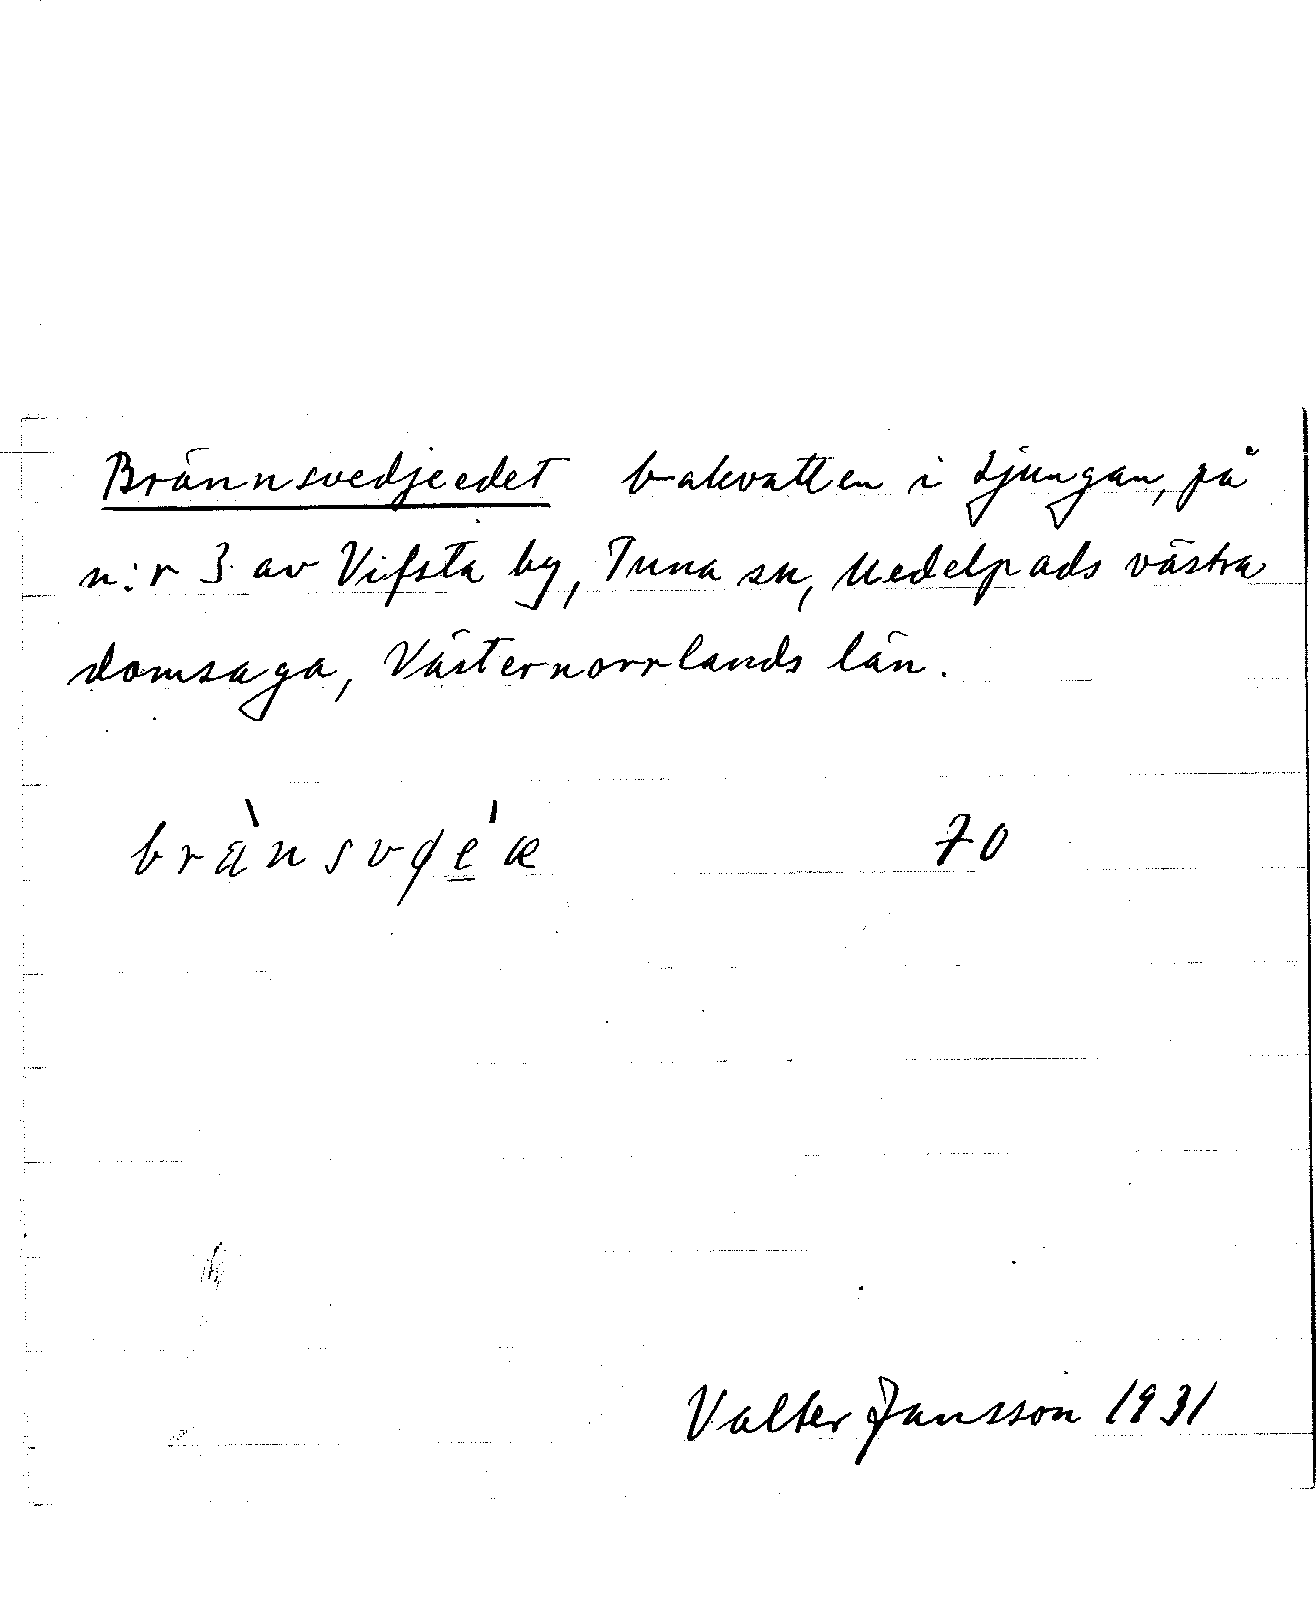 Brännsvedjeedet bakvatten i Ljungan, på
n:r 3 av Vifsta by, Tuna sn, Medelpads västra
domsaga, Västernorrlands län.
70
Valter Jansson 1931